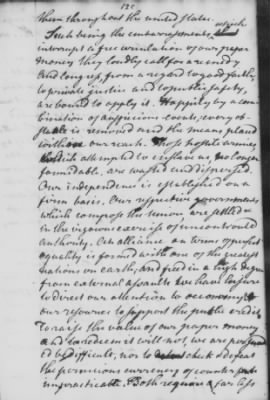 120
them throughout the united states.
Such being the embarrassments, which
interrupt a free circulation of our paper
money they loudly call for a remedy
And Congress, from a regard to good faith,
to private justice and to public safety,
are bound to apply it. Happily by a com-
bination of auspicious events, every ob-
stacle is removed and the means placed
within our reach. Those hostile armies
which attempted to enslave us, no longer
formidable, are wasted and dispersed.
Our independence is established on a
firm basis. Our respective governments,
which compose the union, are settled
in the vigorous exercise of uncontrould
Authority. An alliance on terms of perfect
equality is formed with one of the greatest
nations on earth; and freed in a high degree
from external assaults we have leisure
to direct our attention to
our resources to support the public credit
To raise the value of our paper money
and to redeem it will not, we are persuad
ed be difficult, nor to check & defeat
the pernicious currency of counter
impracticable. Both require a far less